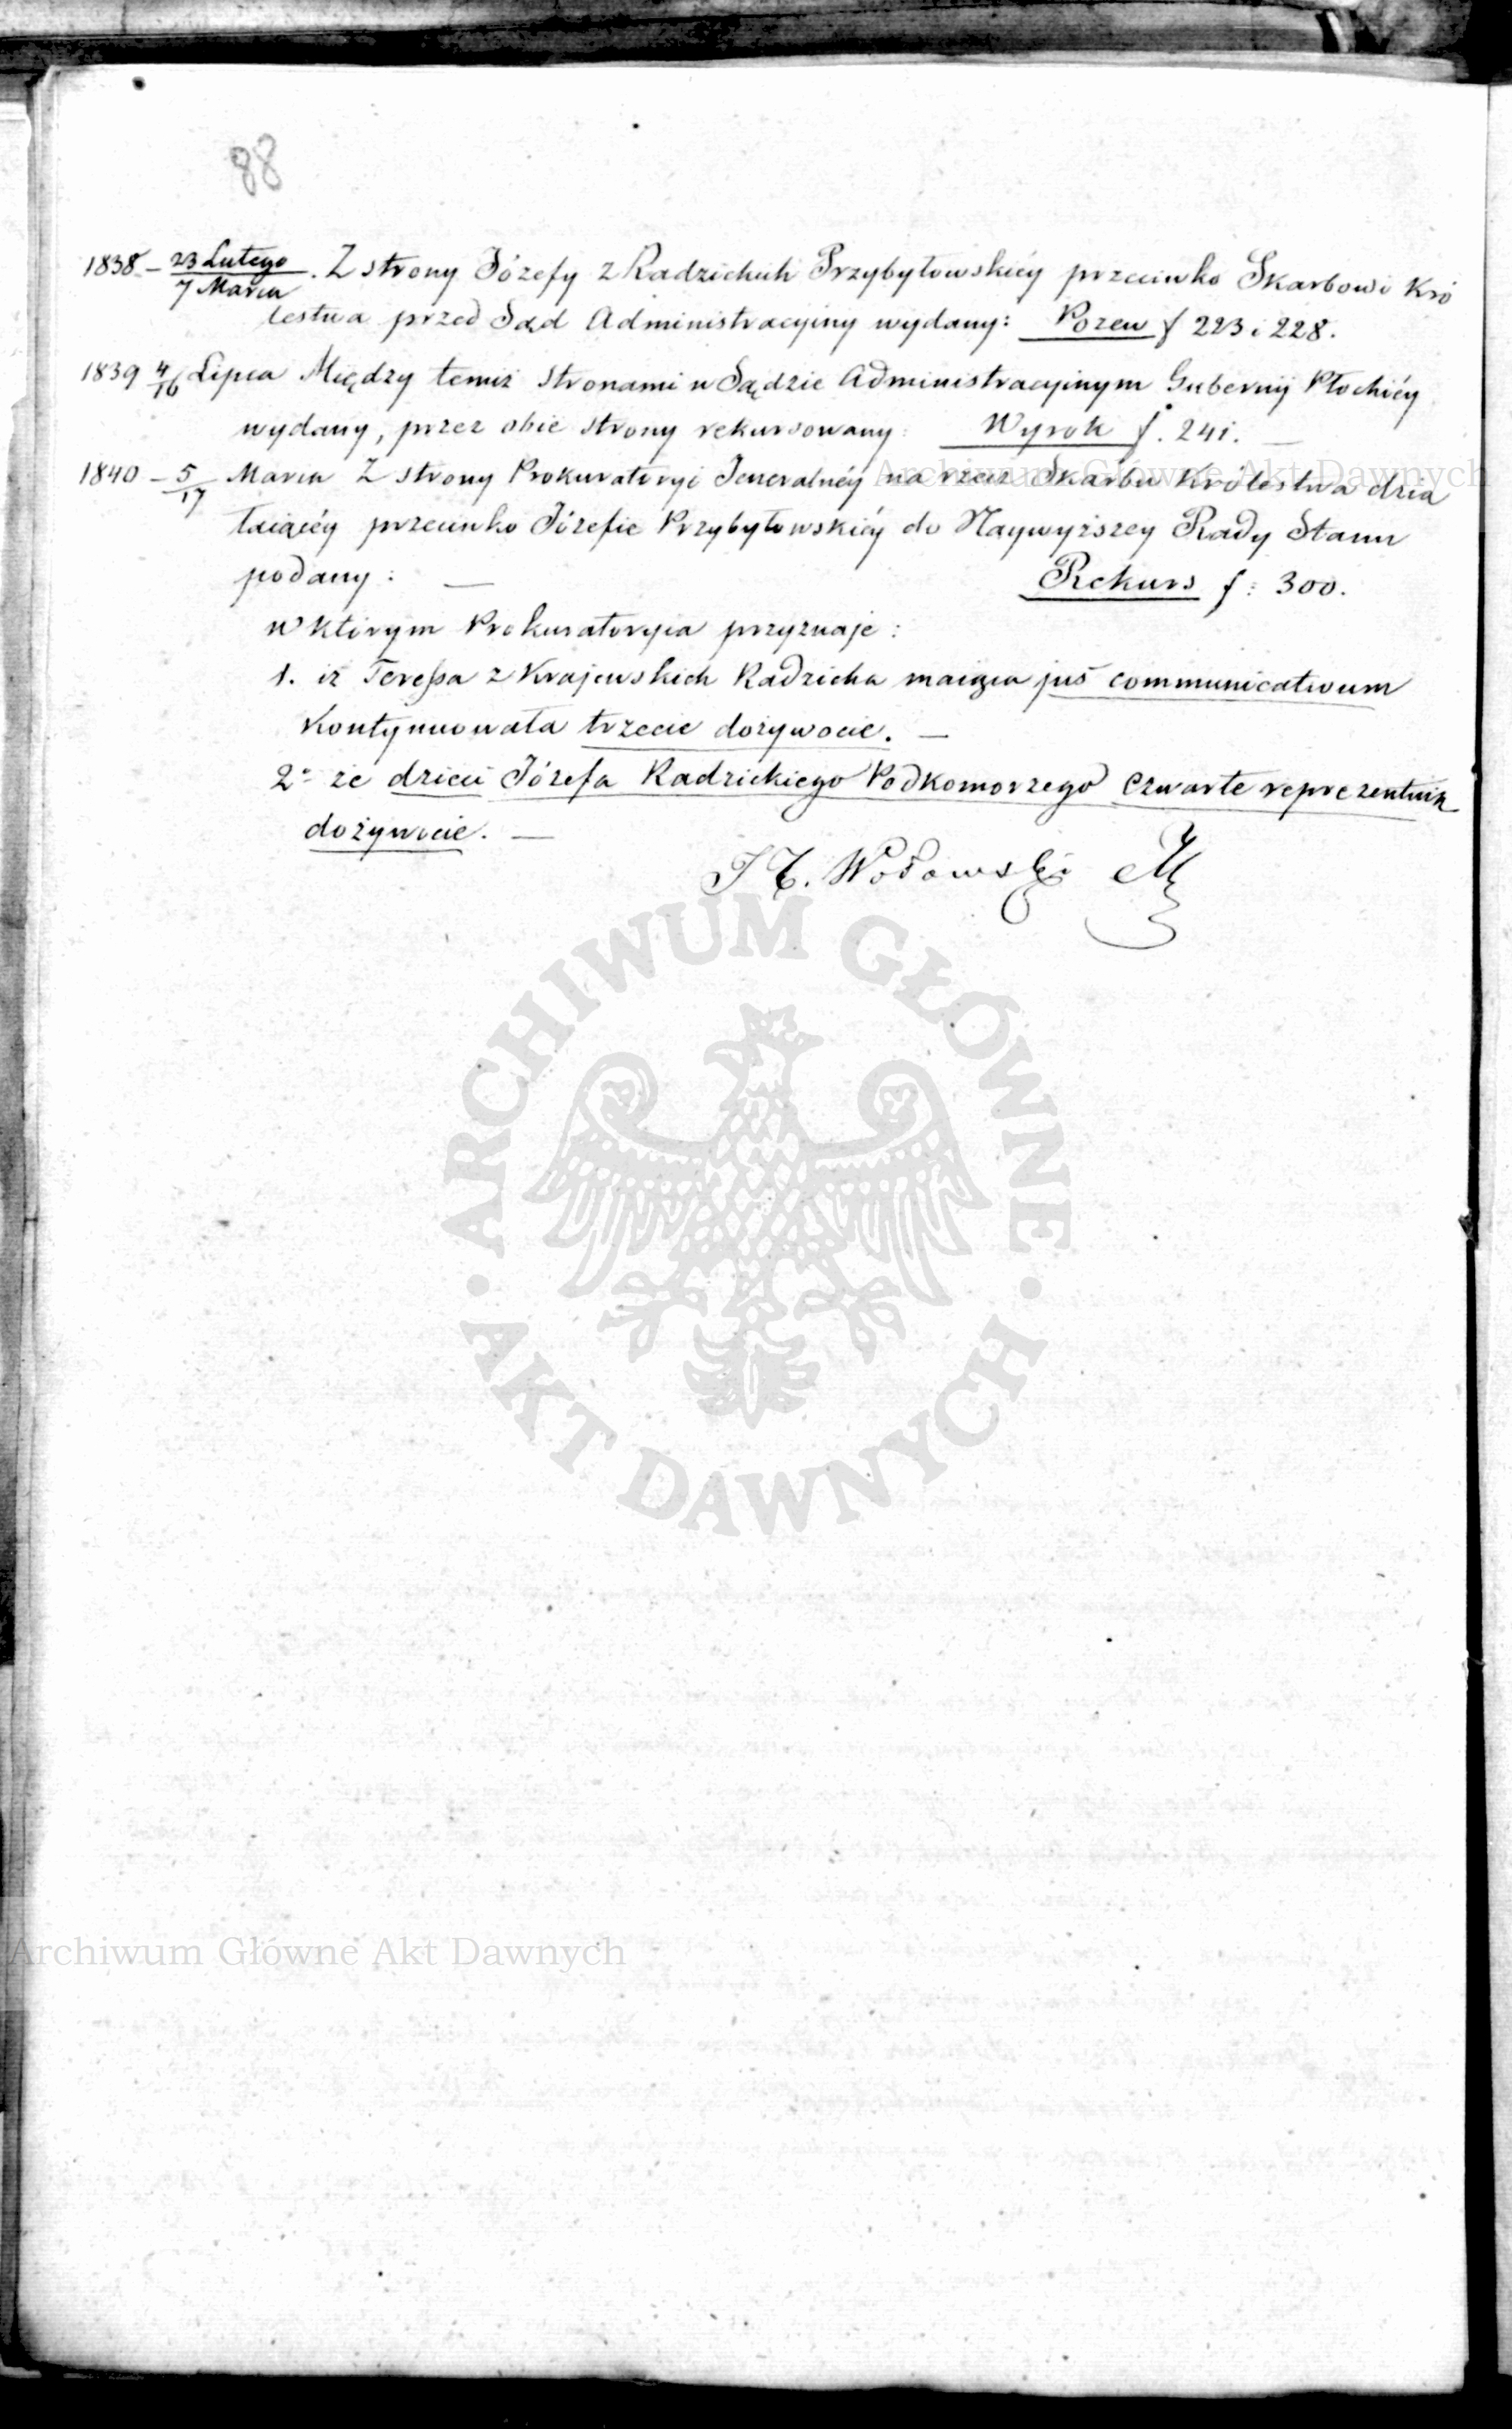 88
1838 – 23 Lutego / 7 Marca . Z strony Józefy z Radzickich Przybyłowskiéy przeciwko Skarbowi Kró
lestwa przed Sąd Administracyiny wydany: Pozew f 223 i 228.
1839 4/16 Lipca Między temiż stronami w Sądzie Administracyinym Gubernij Płockiéy
wydany, przez obie strony rekursowany: Wyrok f. 241. —
1840 – 5/17 Marca Z strony Prokuratoryi Jeneralnéy na rzecz Skarbu Królestwa dzia
łaiącéy przeciwko Józefie Przybyłowskiéy do Naywyższey Rady Stanu
podany: — Rekurs f: 300.
w którym Prokuratorya przyznaje:
1. iż Teressa z Krajewskich Radzicka maiąca jus communicativum
kontynuowała trzecie dożywocie. —
2° że dzieci Józefa Radzickiego Podkomorzego czwarte reprezentuią
dożywocie. —
J K. Wołowski
Archiwum Główne Akt Dawnych
ARCHIWUM GŁÓWNE · AKT DAWNYCH ·
Archiwum Główne Akt Dawnych